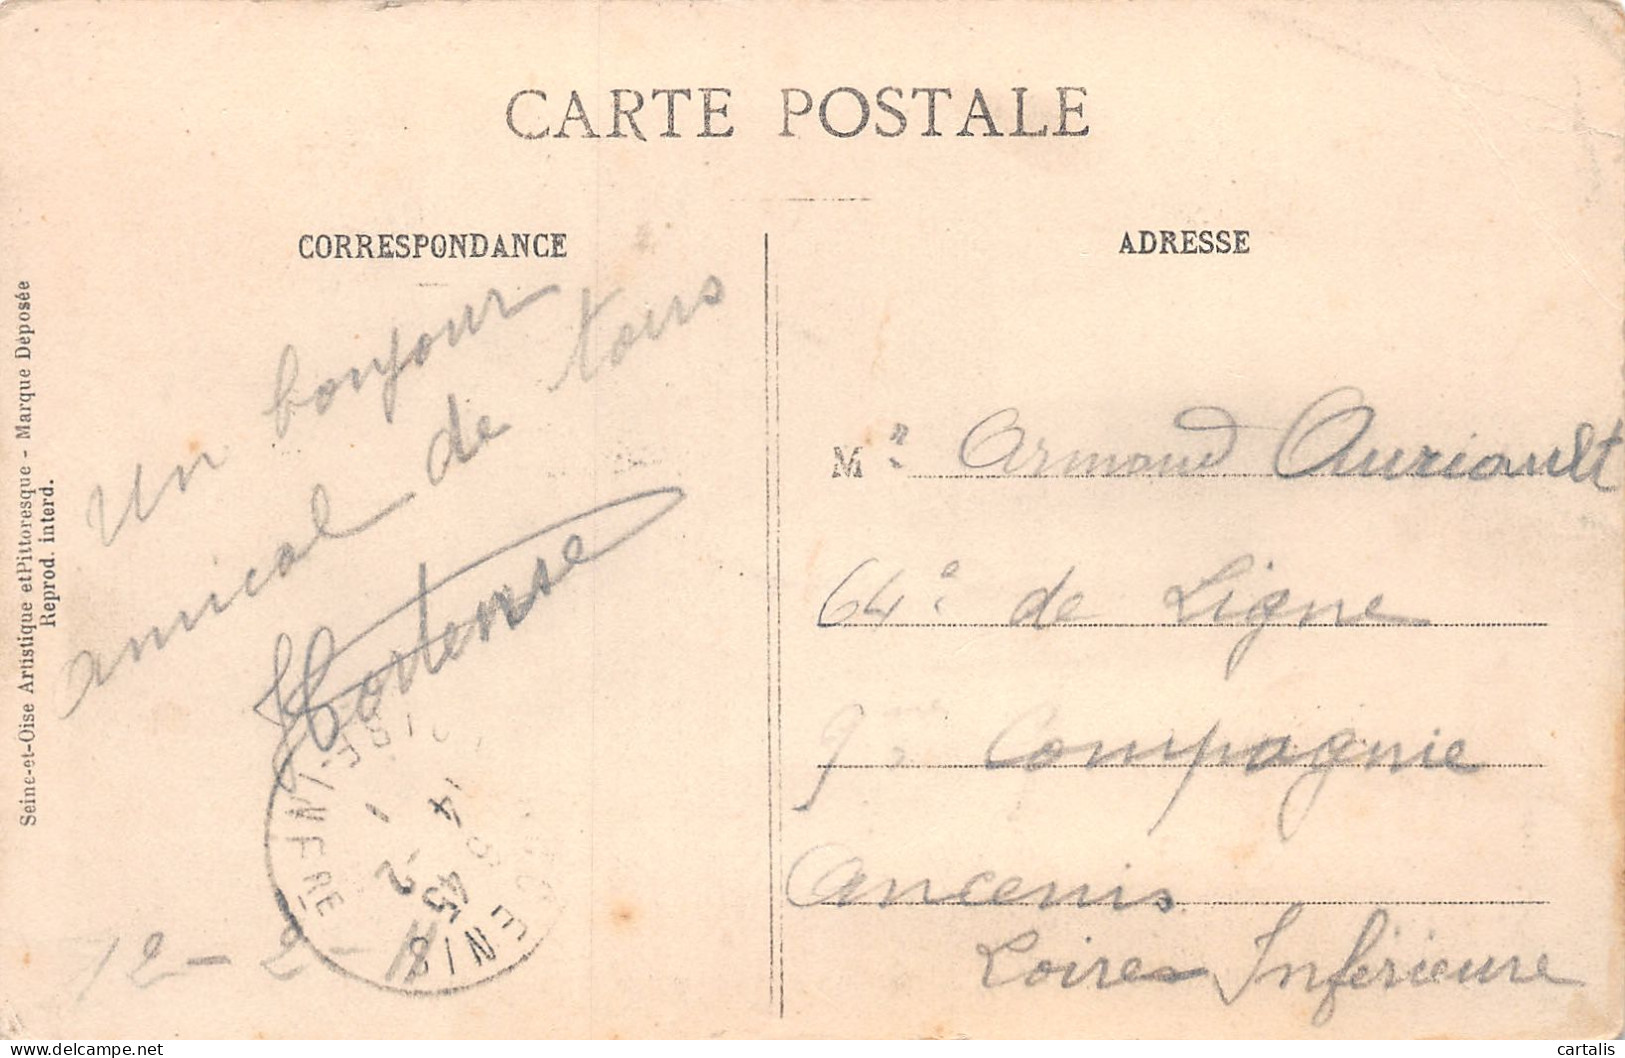 CARTE POSTALE
CORRESPONDANCE
ADRESSE
Seine-et-Oise Artistique et Pittoresque - Marque Déposée
Reprod. interd.
Un bonjour
amical de tous
Hortense
12-2-11
Mr Armand Auriault
64e de Ligne
9e Compagnie
Ancenis
Loires Inférieure
ENIS
INFRE
14
cartalis
delcampe.net